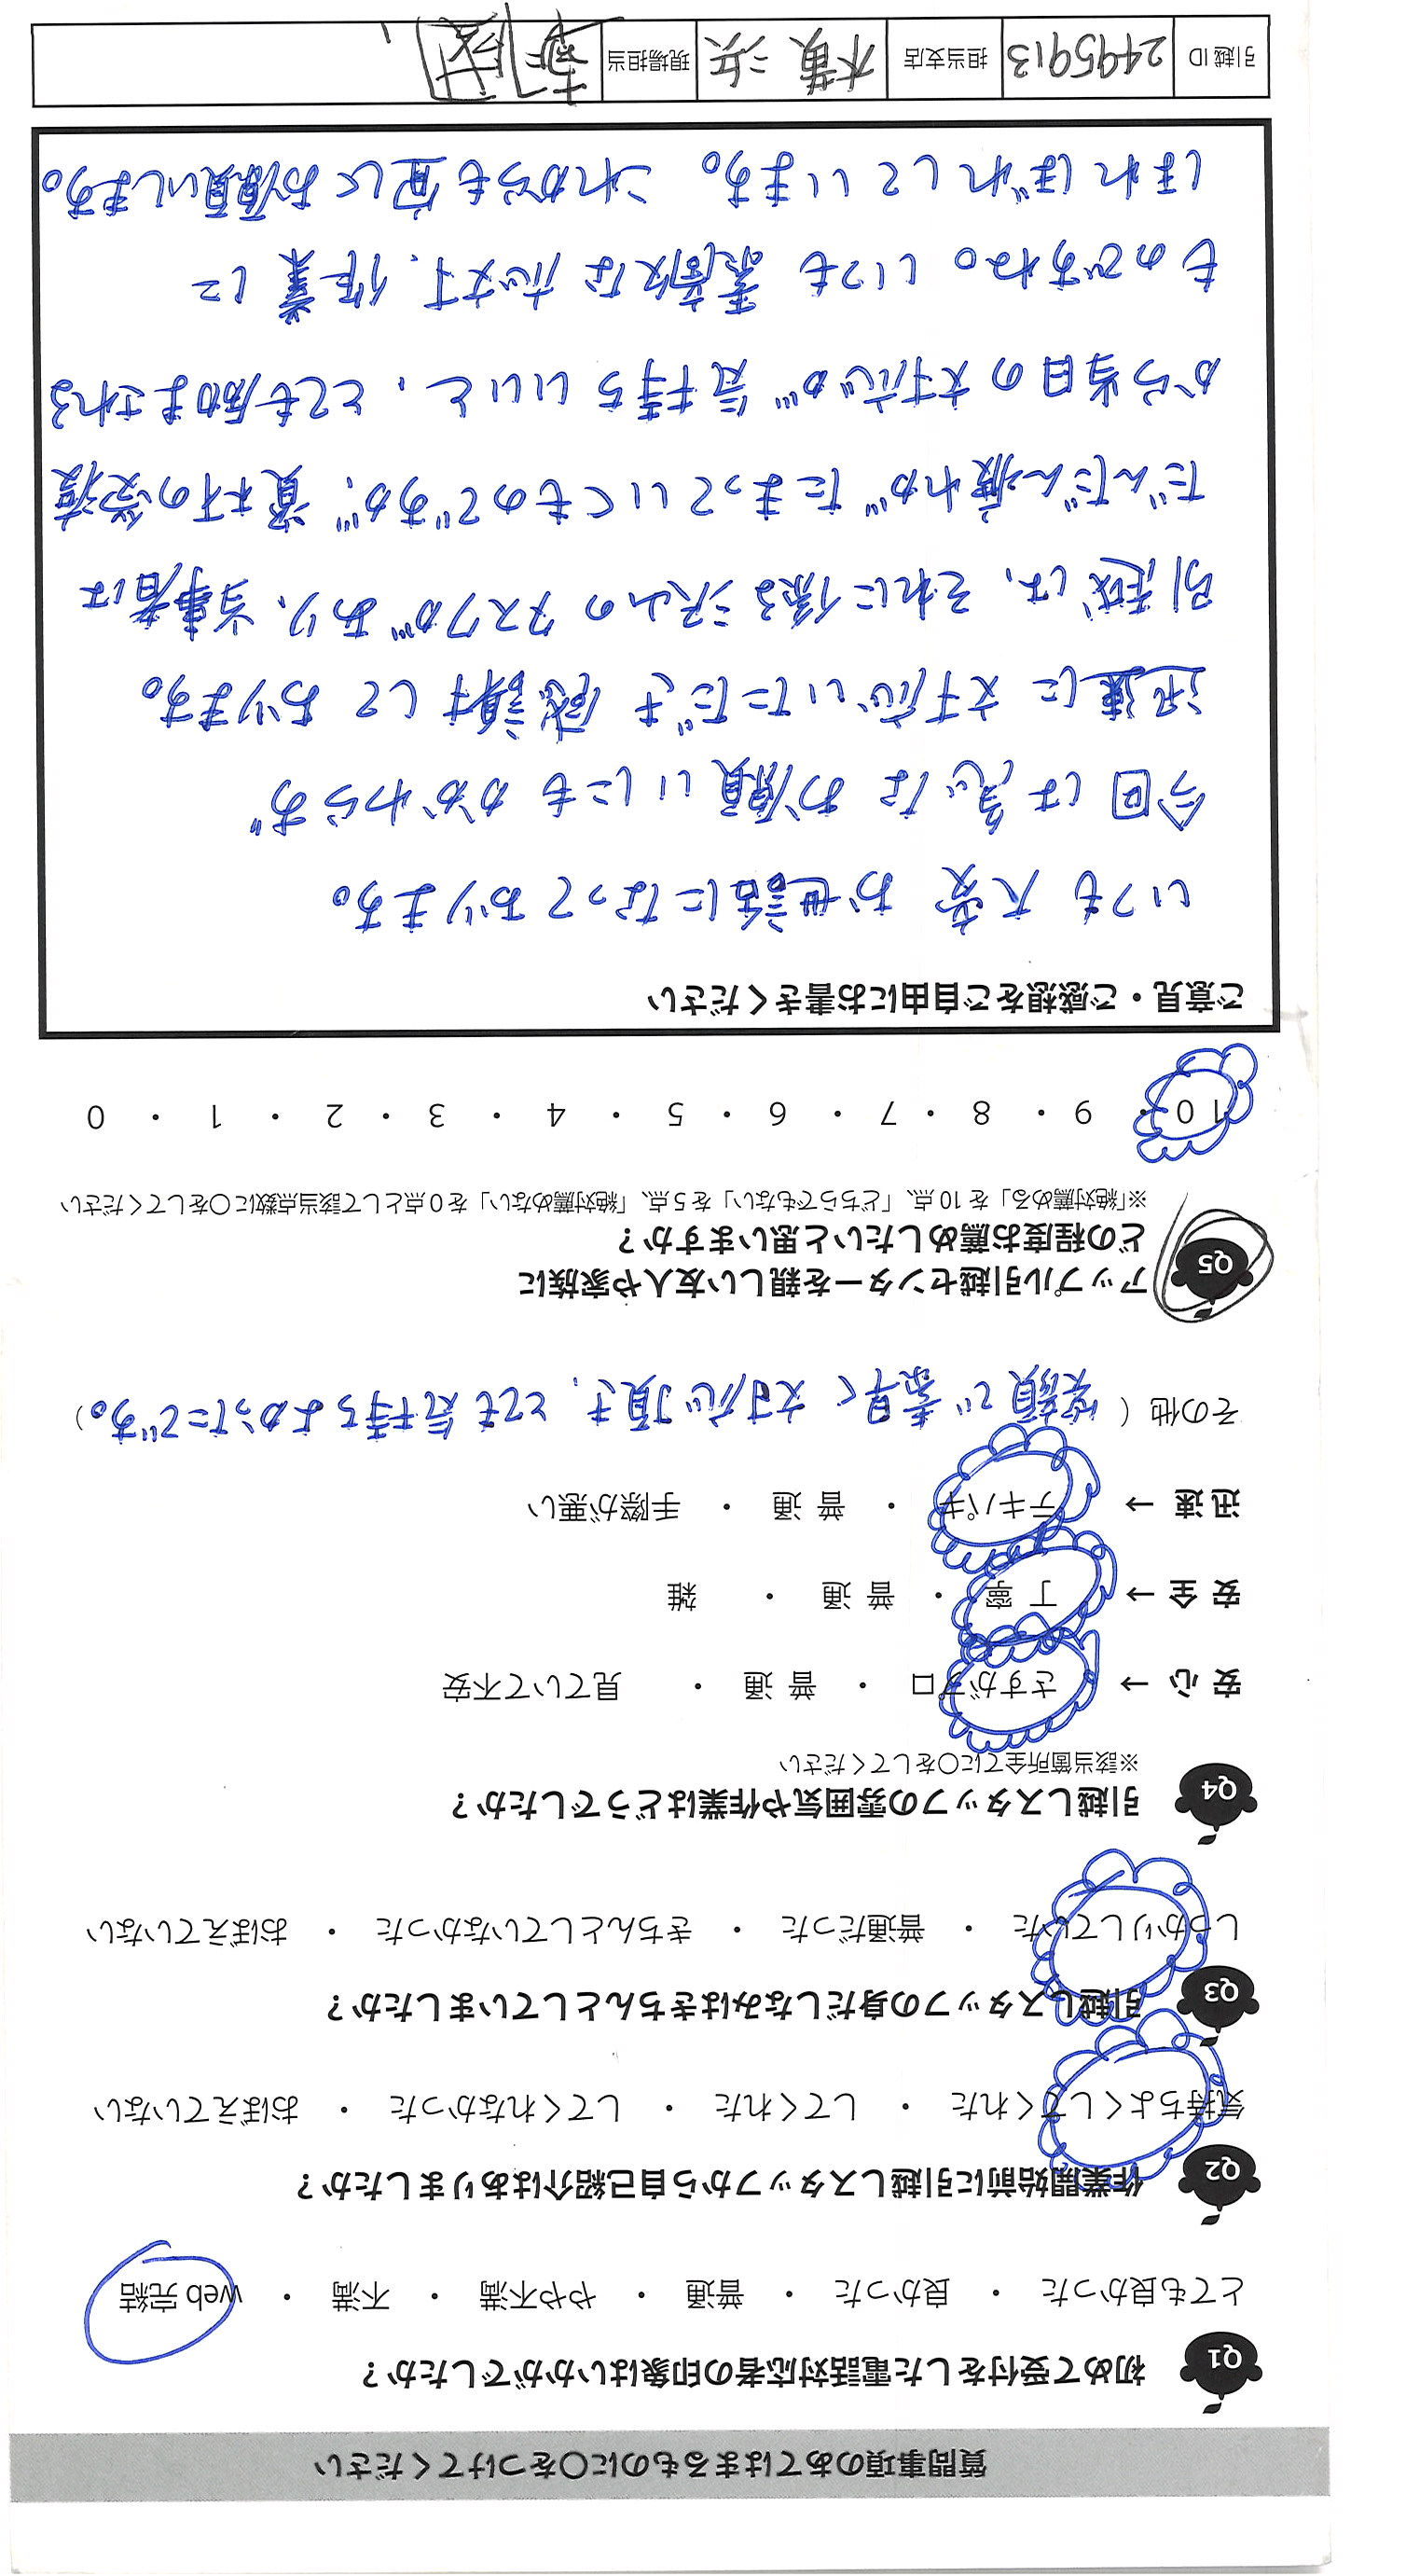 質問事項のあてはまるものに○をつけてください
Q1 初めて受付をした電話対応者の印象はいかがでしたか？
とても良かった ・ 良かった ・ 普通 ・ やや不満 ・ 不満 ・ web完結
Q2 作業開始前に引越しスタッフから自己紹介はありましたか？
気持ちよくしてくれた ・ してくれた ・ してくれなかった ・ おぼえていない
Q3 引越しスタッフの身だしなみはきちんとしていましたか？
しっかりしていた ・ 普通だった ・ きちんとしていなかった ・ おぼえていない
Q4 引越しスタッフの雰囲気や作業はどうでしたか？
※該当箇所全てに○をしてください
安心 → さすがプロ ・ 普通 ・ 見ていて不安
安全 → 丁寧 ・ 普通 ・ 雑
迅速 → テキパキ ・ 普通 ・ 手際が悪い
その他（ 笑顔で素早く対応頂き、とても気持ちよかったです。）
Q5 アップル引越センターを親しい友人や家族に
どの程度お薦めしたいと思いますか？
※「絶対薦める」を10点、「どちらでもない」を5点、「絶対薦めない」を0点として該当点数に○をしてください
10 ・ 9 ・ 8 ・ 7 ・ 6 ・ 5 ・ 4 ・ 3 ・ 2 ・ 1 ・ 0
ご意見・ご感想をご自由にお書きください
いつも大変お世話になっております。
今回は急なお願いにもかかわらず
迅速に対応いただき感謝しております。
引越は、それに係る沢山のタスクがあり、当事者は
だんだん疲れがたまっていくものですが、資材の受渡
から当日の対応が気持ちいいと、とても励まされる
ものですね。いつも素敵な応対、作業に
ほれぼれしています。これからも宜しくお願いします。
引越ID 2495913 担当支店 横浜 現場担当